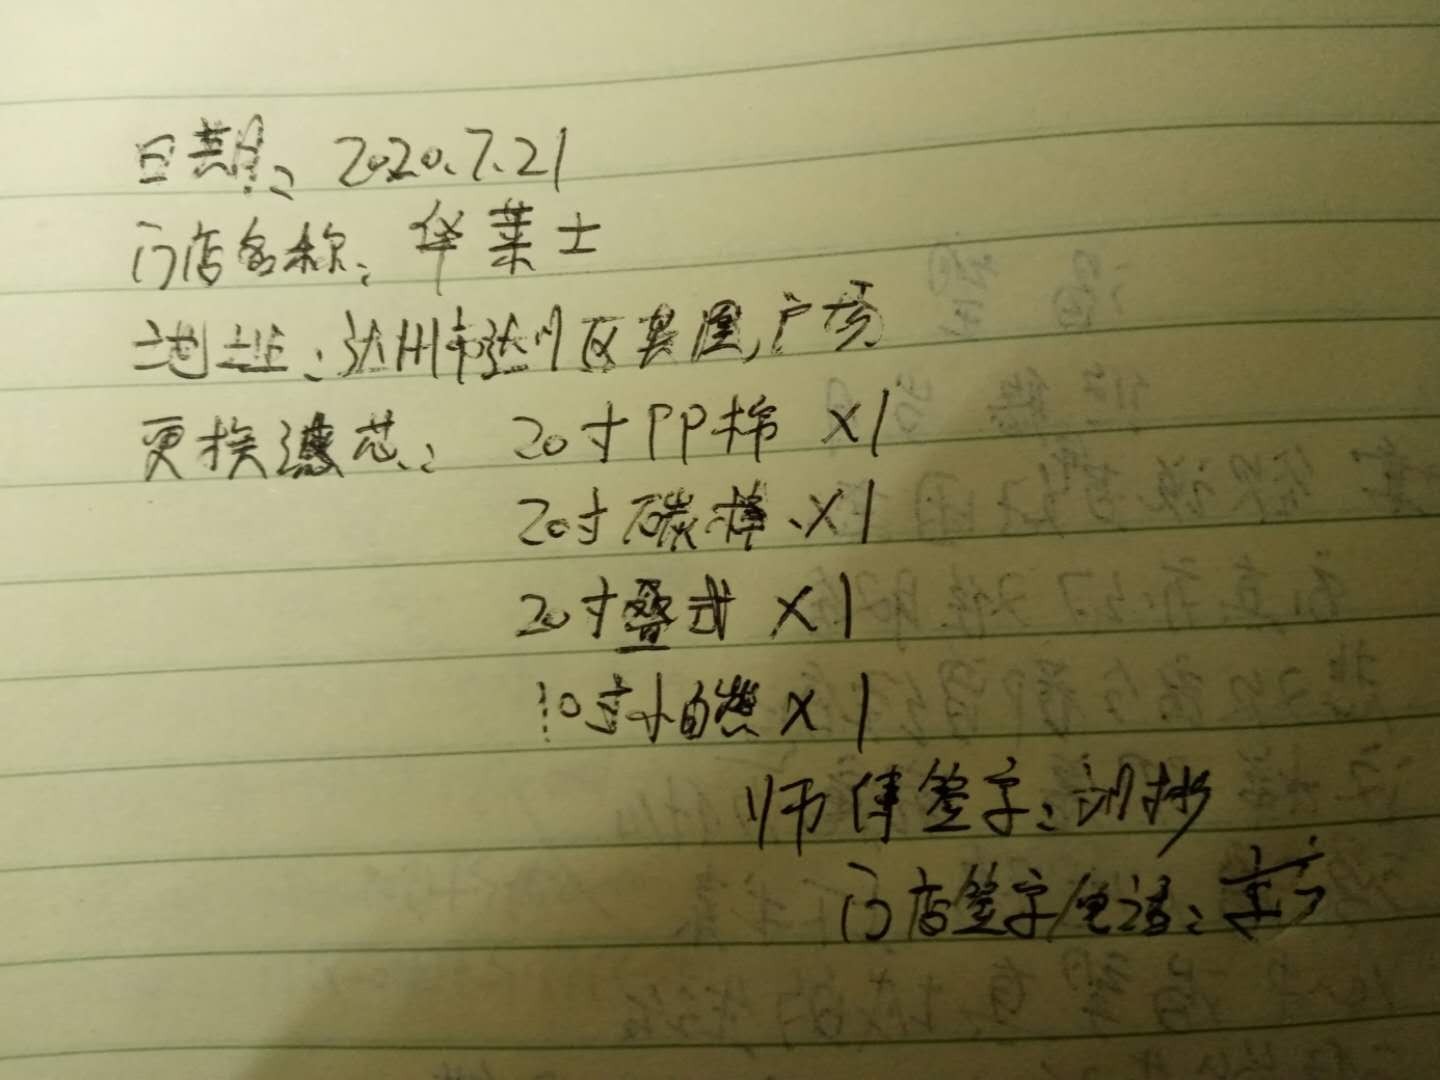 日期：2020.7.21
门店名称：华莱士
地址：达州市达川区凰广场
更换滤芯：20寸PP棉 X1
20寸碳棒 X1
20寸叠式 X1
10寸小白 X1
师傅签字：
门店签字/电话：